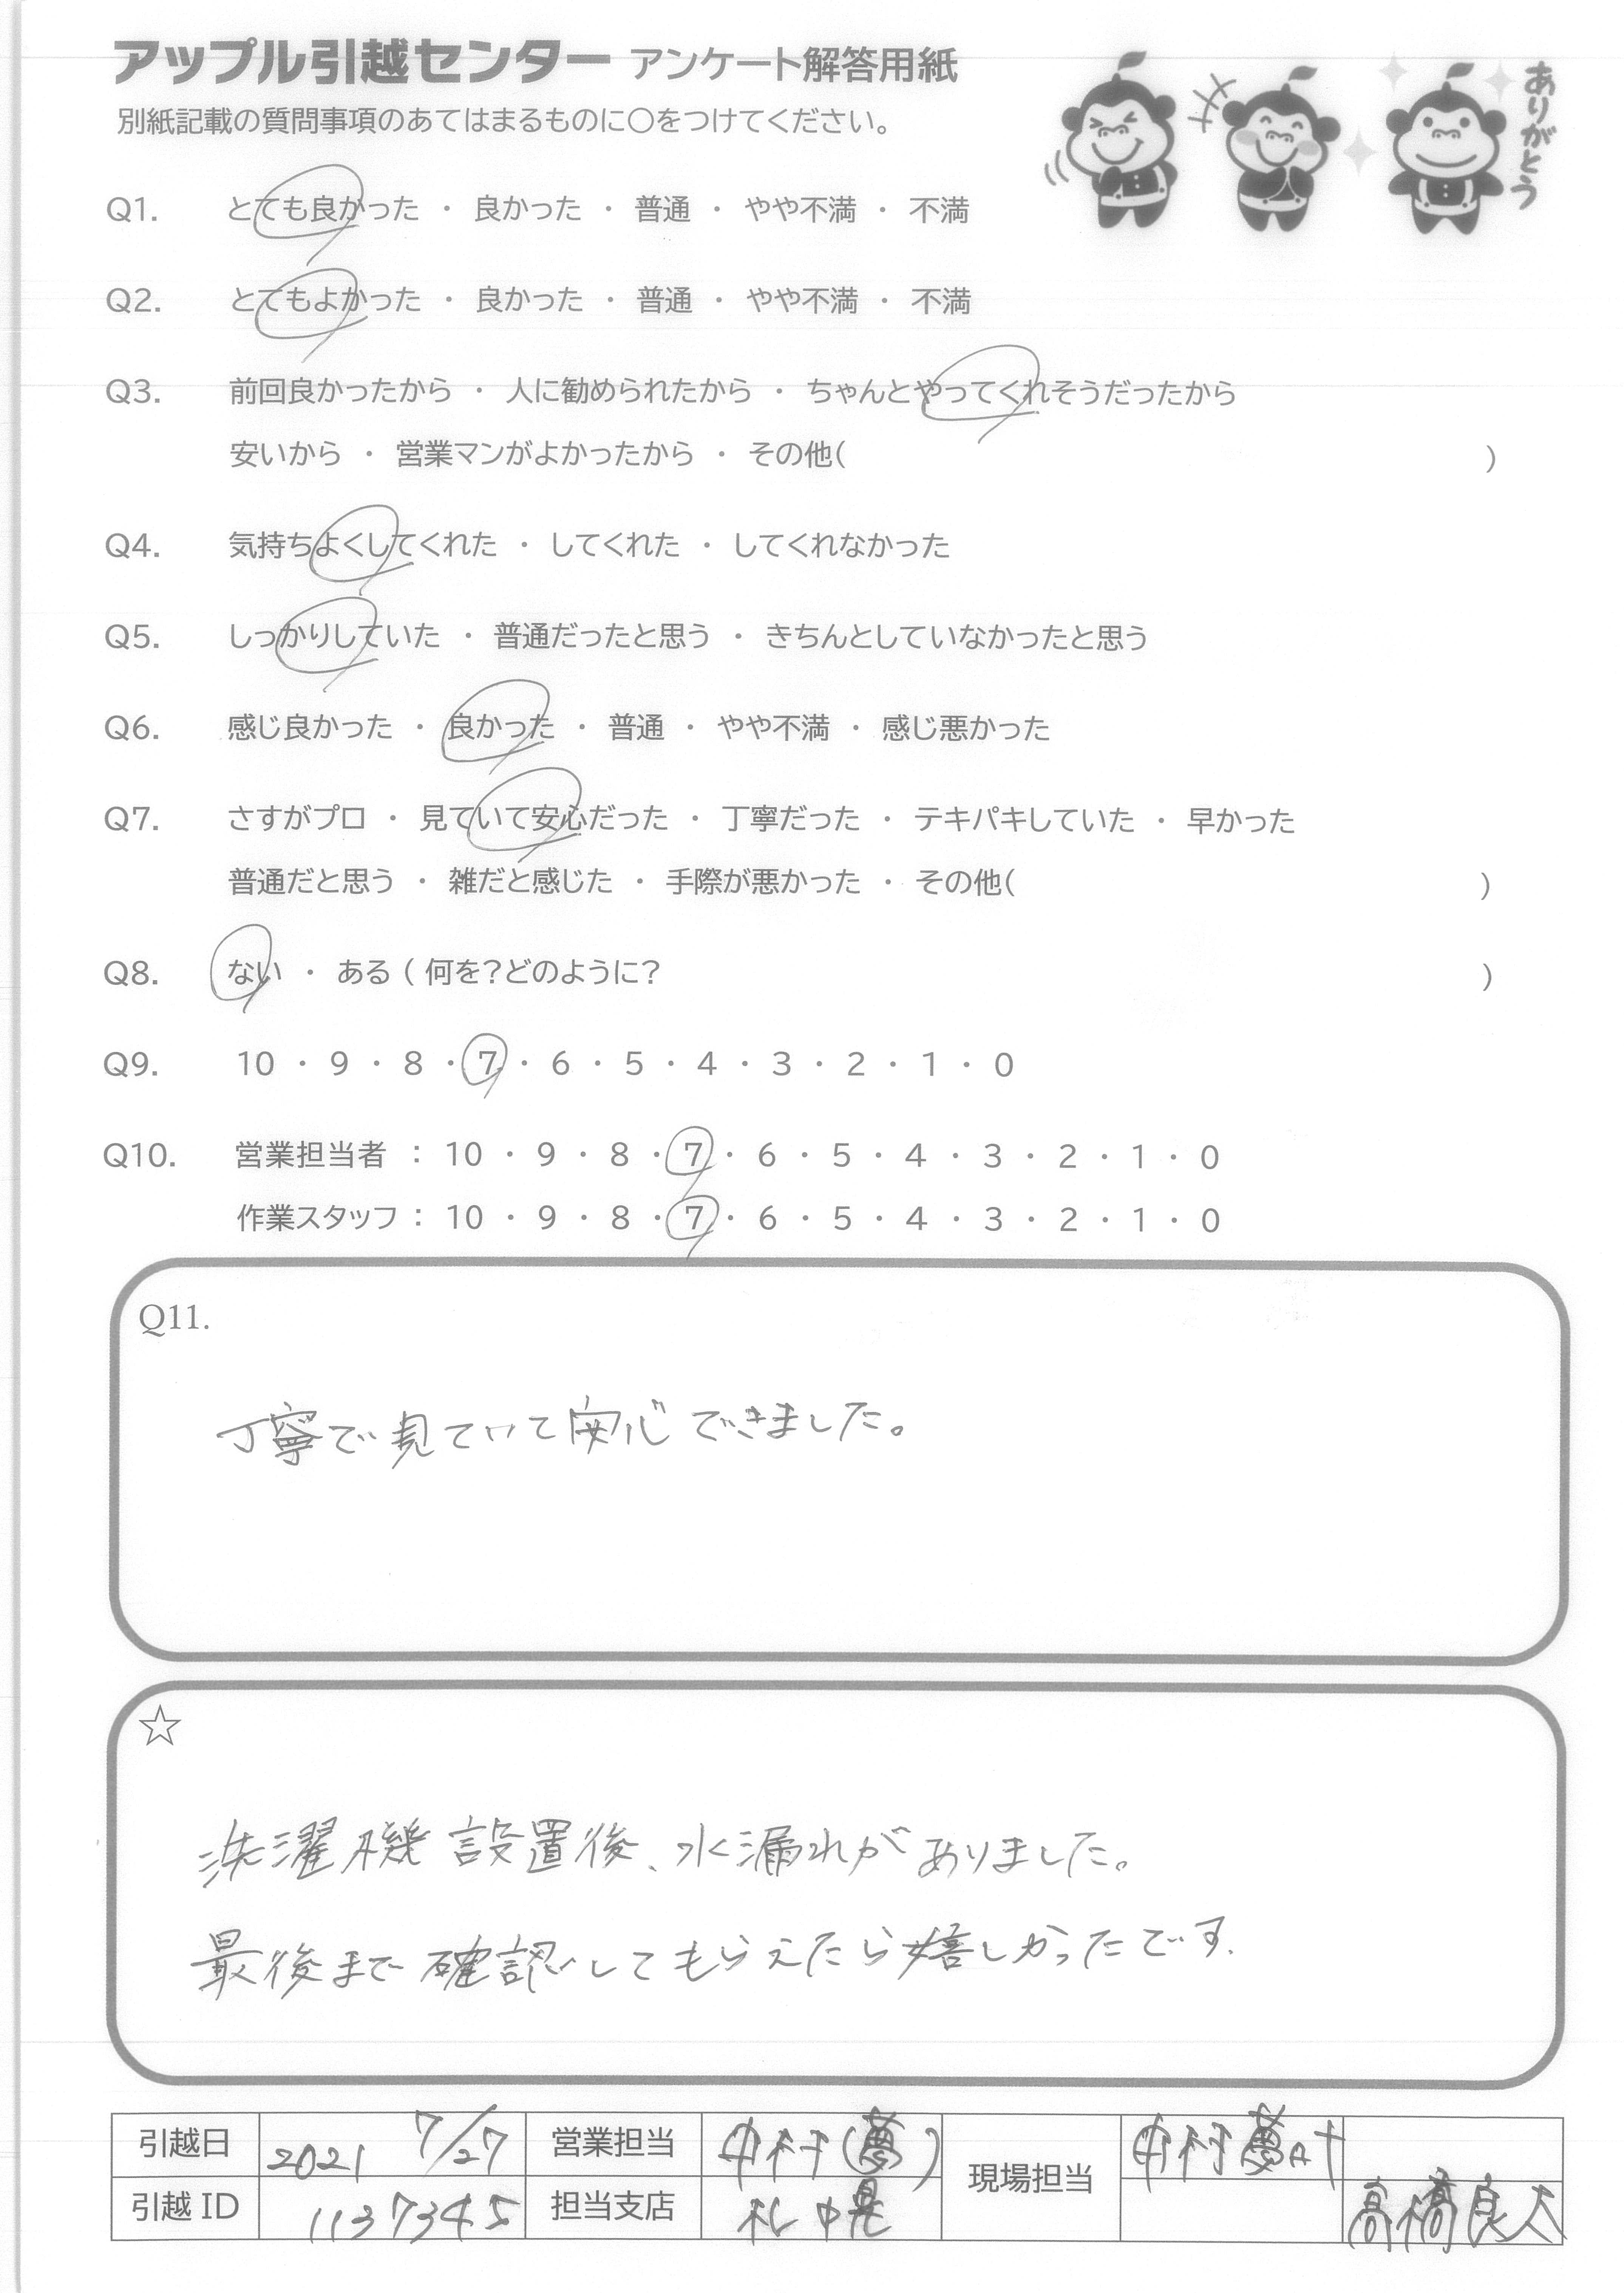 アップル引越センター アンケート解答用紙
別紙記載の質問事項のあてはまるものに〇をつけてください。
ありがとう
Q1. とても良かった ・ 良かった ・ 普通 ・ やや不満 ・ 不満
Q2. とてもよかった ・ 良かった ・ 普通 ・ やや不満 ・ 不満
Q3. 前回良かったから ・ 人に勧められたから ・ ちゃんとやってくれそうだったから
安いから ・ 営業マンがよかったから ・ その他( )
Q4. 気持ちよくしてくれた ・ してくれた ・ してくれなかった
Q5. しっかりしていた ・ 普通だったと思う ・ きちんとしていなかったと思う
Q6. 感じ良かった ・ 良かった ・ 普通 ・ やや不満 ・ 感じ悪かった
Q7. さすがプロ ・ 見ていて安心だった ・ 丁寧だった ・ テキパキしていた ・ 早かった
普通だと思う ・ 雑だと感じた ・ 手際が悪かった ・ その他( )
Q8. ない ・ ある ( 何を?どのように? )
Q9. 10 ・ 9 ・ 8 ・ 7 ・ 6 ・ 5 ・ 4 ・ 3 ・ 2 ・ 1 ・ 0
Q10. 営業担当者 : 10 ・ 9 ・ 8 ・ 7 ・ 6 ・ 5 ・ 4 ・ 3 ・ 2 ・ 1 ・ 0
作業スタッフ : 10 ・ 9 ・ 8 ・ 7 ・ 6 ・ 5 ・ 4 ・ 3 ・ 2 ・ 1 ・ 0
Q11.
丁寧で見ていて安心できました。
☆
洗濯機設置後、水漏れがありました。
最後まで確認してもらえたら嬉しかったです.
引越日 2021 7/27 営業担当 中村(夢) 現場担当 中村夢叶
引越ID 1137345 担当支店 札幌 高橋良太